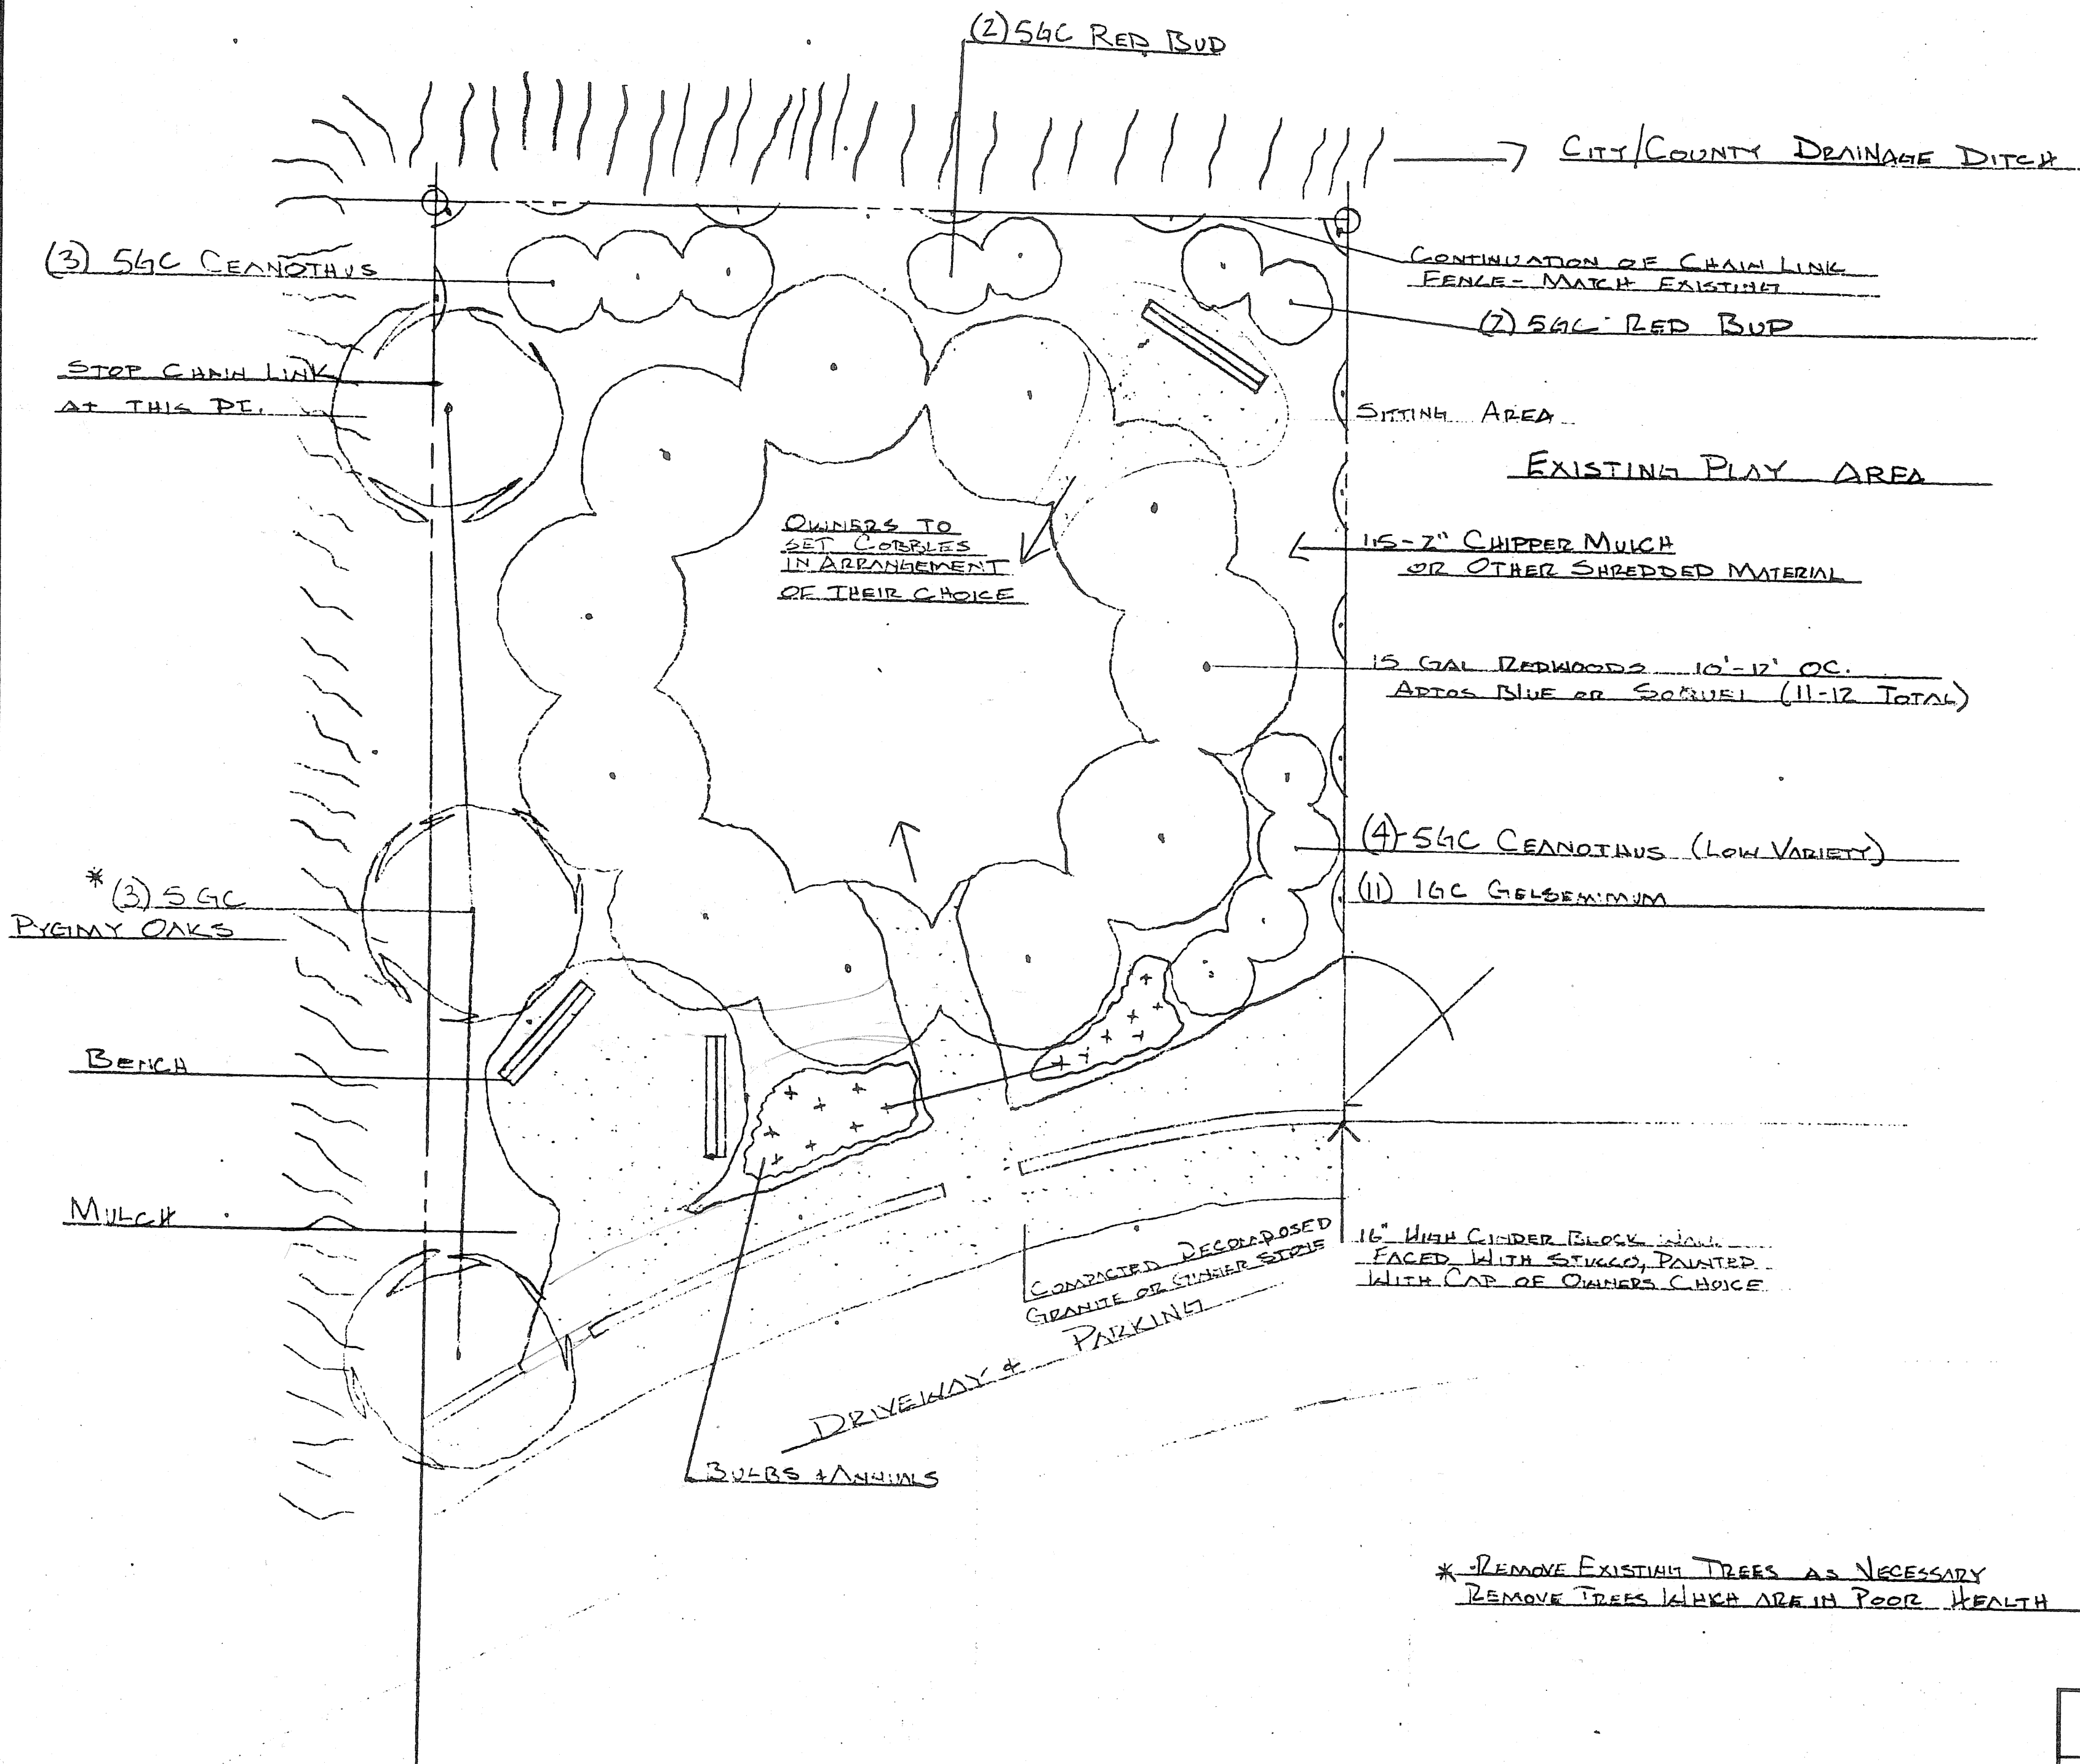 (2) 5GC RED BUD
CITY/COUNTY DRAINAGE DITCH
(3) 5GC CEANOTHUS
CONTINUATION OF CHAIN LINK
FENCE - MATCH EXISTING
(2) 5GC RED BUD
STOP CHAIN LINK
AT THIS PT.
SITTING AREA
EXISTING PLAY AREA
OWNERS TO
SET COBBLES
IN ARRANGEMENT
OF THEIR CHOICE
1.5-2" CHIPPER MULCH
OR OTHER SHREDDED MATERIAL
15 GAL REDWOODS 10'-12' OC.
APTOS BLUE OR SOQUEL (11-12 TOTAL)
(4)-5GC CEANOTHUS (LOW VARIETY)
(11) 1GC GELSEMIMUM
* (3) 5 GC
PYGMY OAKS
BENCH
MULCH
COMPACTED DECOMPOSED
GRANITE OR GINGER STONE
16" HIGH CINDER BLOCK WALL
FACED WITH STUCCO, PAINTED
WITH CAP OF OWNERS CHOICE
DRIVEWAY + PARKING
BULBS + ANNUALS
* REMOVE EXISTING TREES AS NECESSARY
REMOVE TREES WHICH ARE IN POOR HEALTH